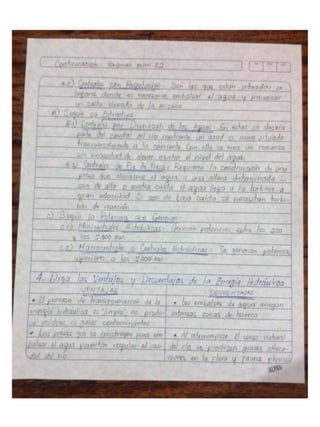 Continuación Examen mim R2
a.2) Centrales con Regulación: Son las que están situadas en
lugares donde es necesario embalsar el agua y provocar
un salto elevado de la misma
b) Según su Estructura
b.1) Centrales por Derivación de las Aguas: En estas se desvía
parte del caudal del río mediante un azud o presa situada
transversalmente a la corriente. Con ello se crea un remanso
sin necesidad de elevar mucho el nivel del agua.
b.2) Centrales de Pie de Presa: Requieren la construcción de una
presa que almacene el agua a una altura determinada. Si
son de alta o media caída el agua llega a la turbina a
gran velocidad. Si son de baja caída se necesitan turbi-
nas de reacción
c) Según la Potencia que Generan
c.1) Minicentrales Hidráulicas: Generan potencias entre los 250
y los 5.000 kw
c.2) Macrocentrales o Centrales Hidráulicas: Se generan potencias
superiores a los 5.000 kw
4. Diga las Ventajas y Desventajas de la Energía Hidráulica
VENTAJAS DESVENTAJAS
• El proceso de transformación de la • Los embalses de agua anegan
energía hidráulica es "limpio" no produ- extensas zonas de terreno
ce residuos ni gases contaminantes
• Las presas que se construyen para em- • Al interrumpirse el curso natural
balsar el agua permiten regular el cau- del río se producen graves altera-
dal del río ciones en la flora y fauna fluvial